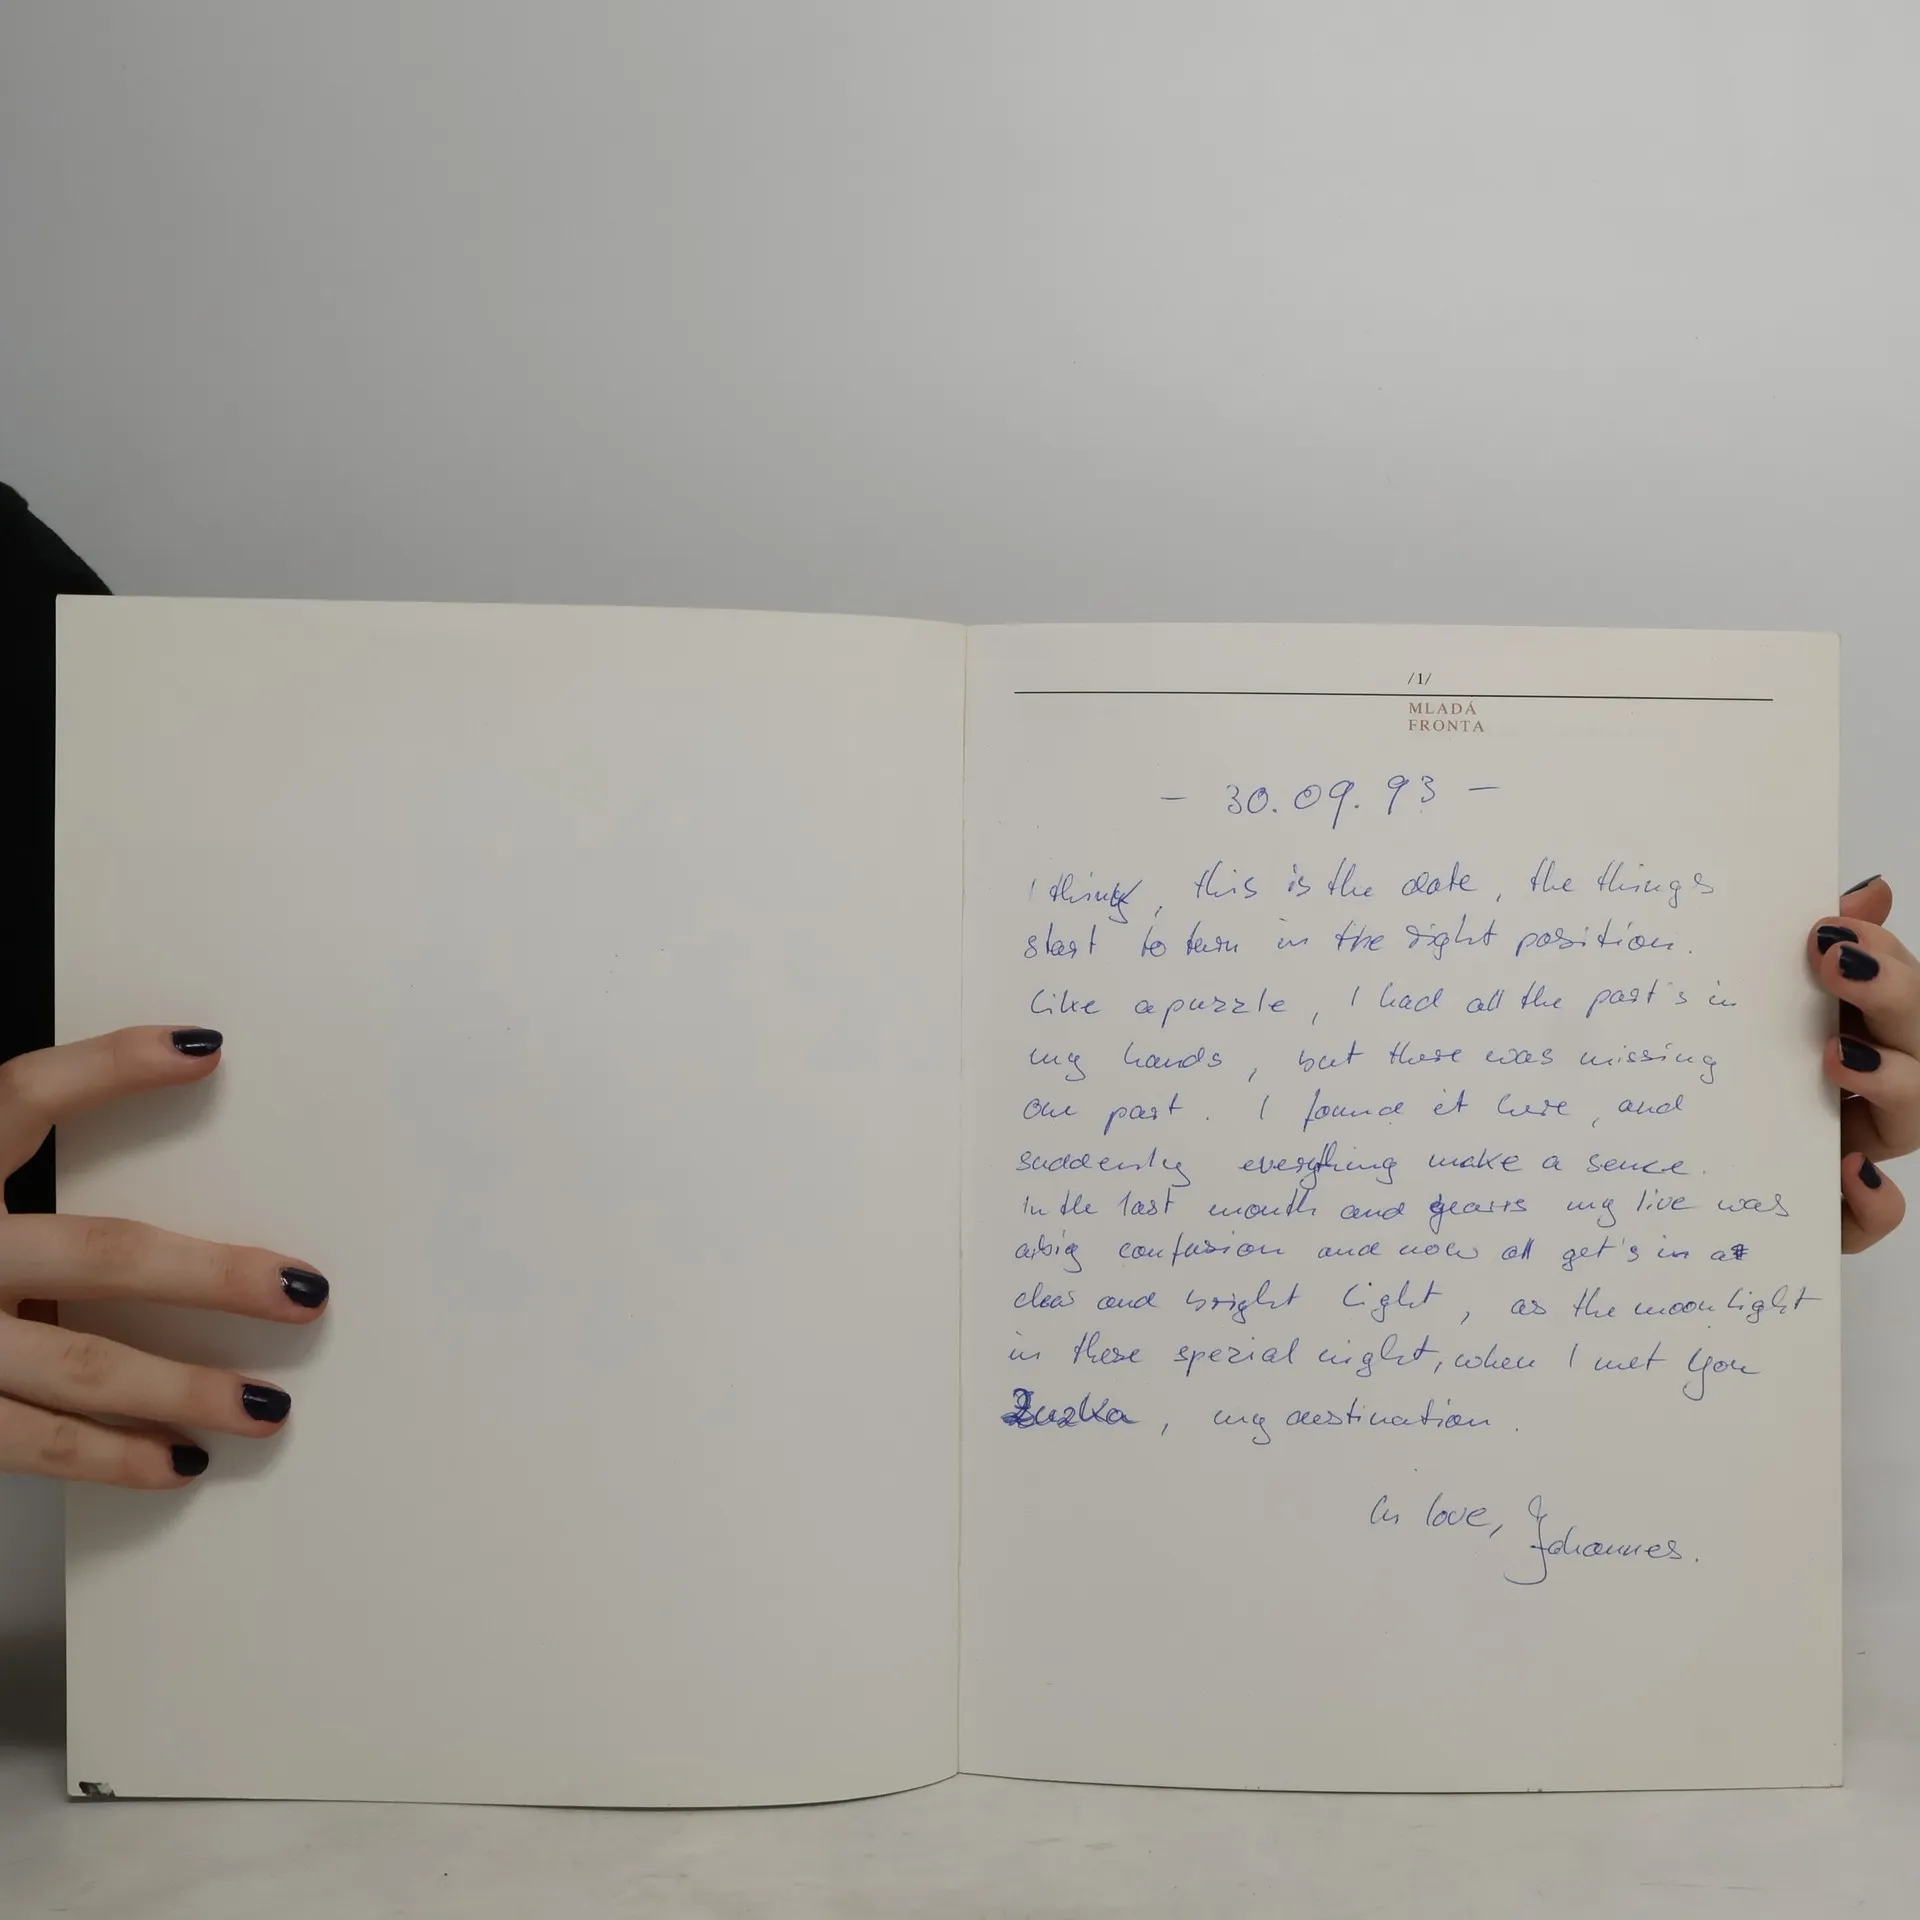 /1/
MLADÁ
FRONTA
- 30.09.93 -
I think, this is the date, the things
start to turn in the right position.
Like a puzzle, I had all the part's in
my hands, but there was missing
one part. I found it here, and
suddenly everything make a sence.
In the last month and years my live was
a big confusion and now all get's in a
clear and bright light, as the moonlight
in these spezial night, when I met You
Zuzka, my destination.
In love, Johannes.